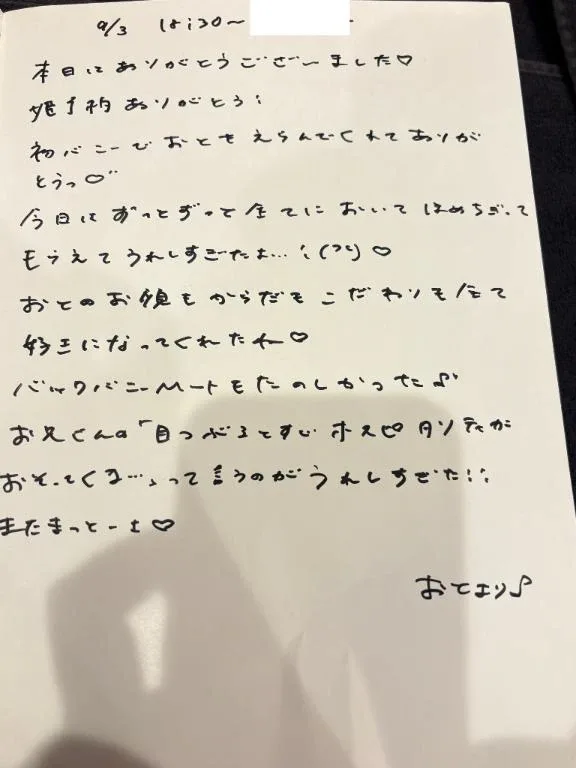 9/3 18:30〜
本日はありがとうございました♡
姫予約ありがとう!
初バニーでおとをえらんでくれてありが
とうっ♡"
今日はずっとずっと全てにおいてほめちぎって
もらえてうれしすぎたよ…!( )♡
おとのお顔もからだもこだわりも全て
好きになってくれたね♡
バックバニームートもたのしかった♪
お兄くんの「目つぶるとすぐホスピタリティが
おそってくる…」って言うのがうれしすぎた!!
またまっとーよ♡
おとより♪